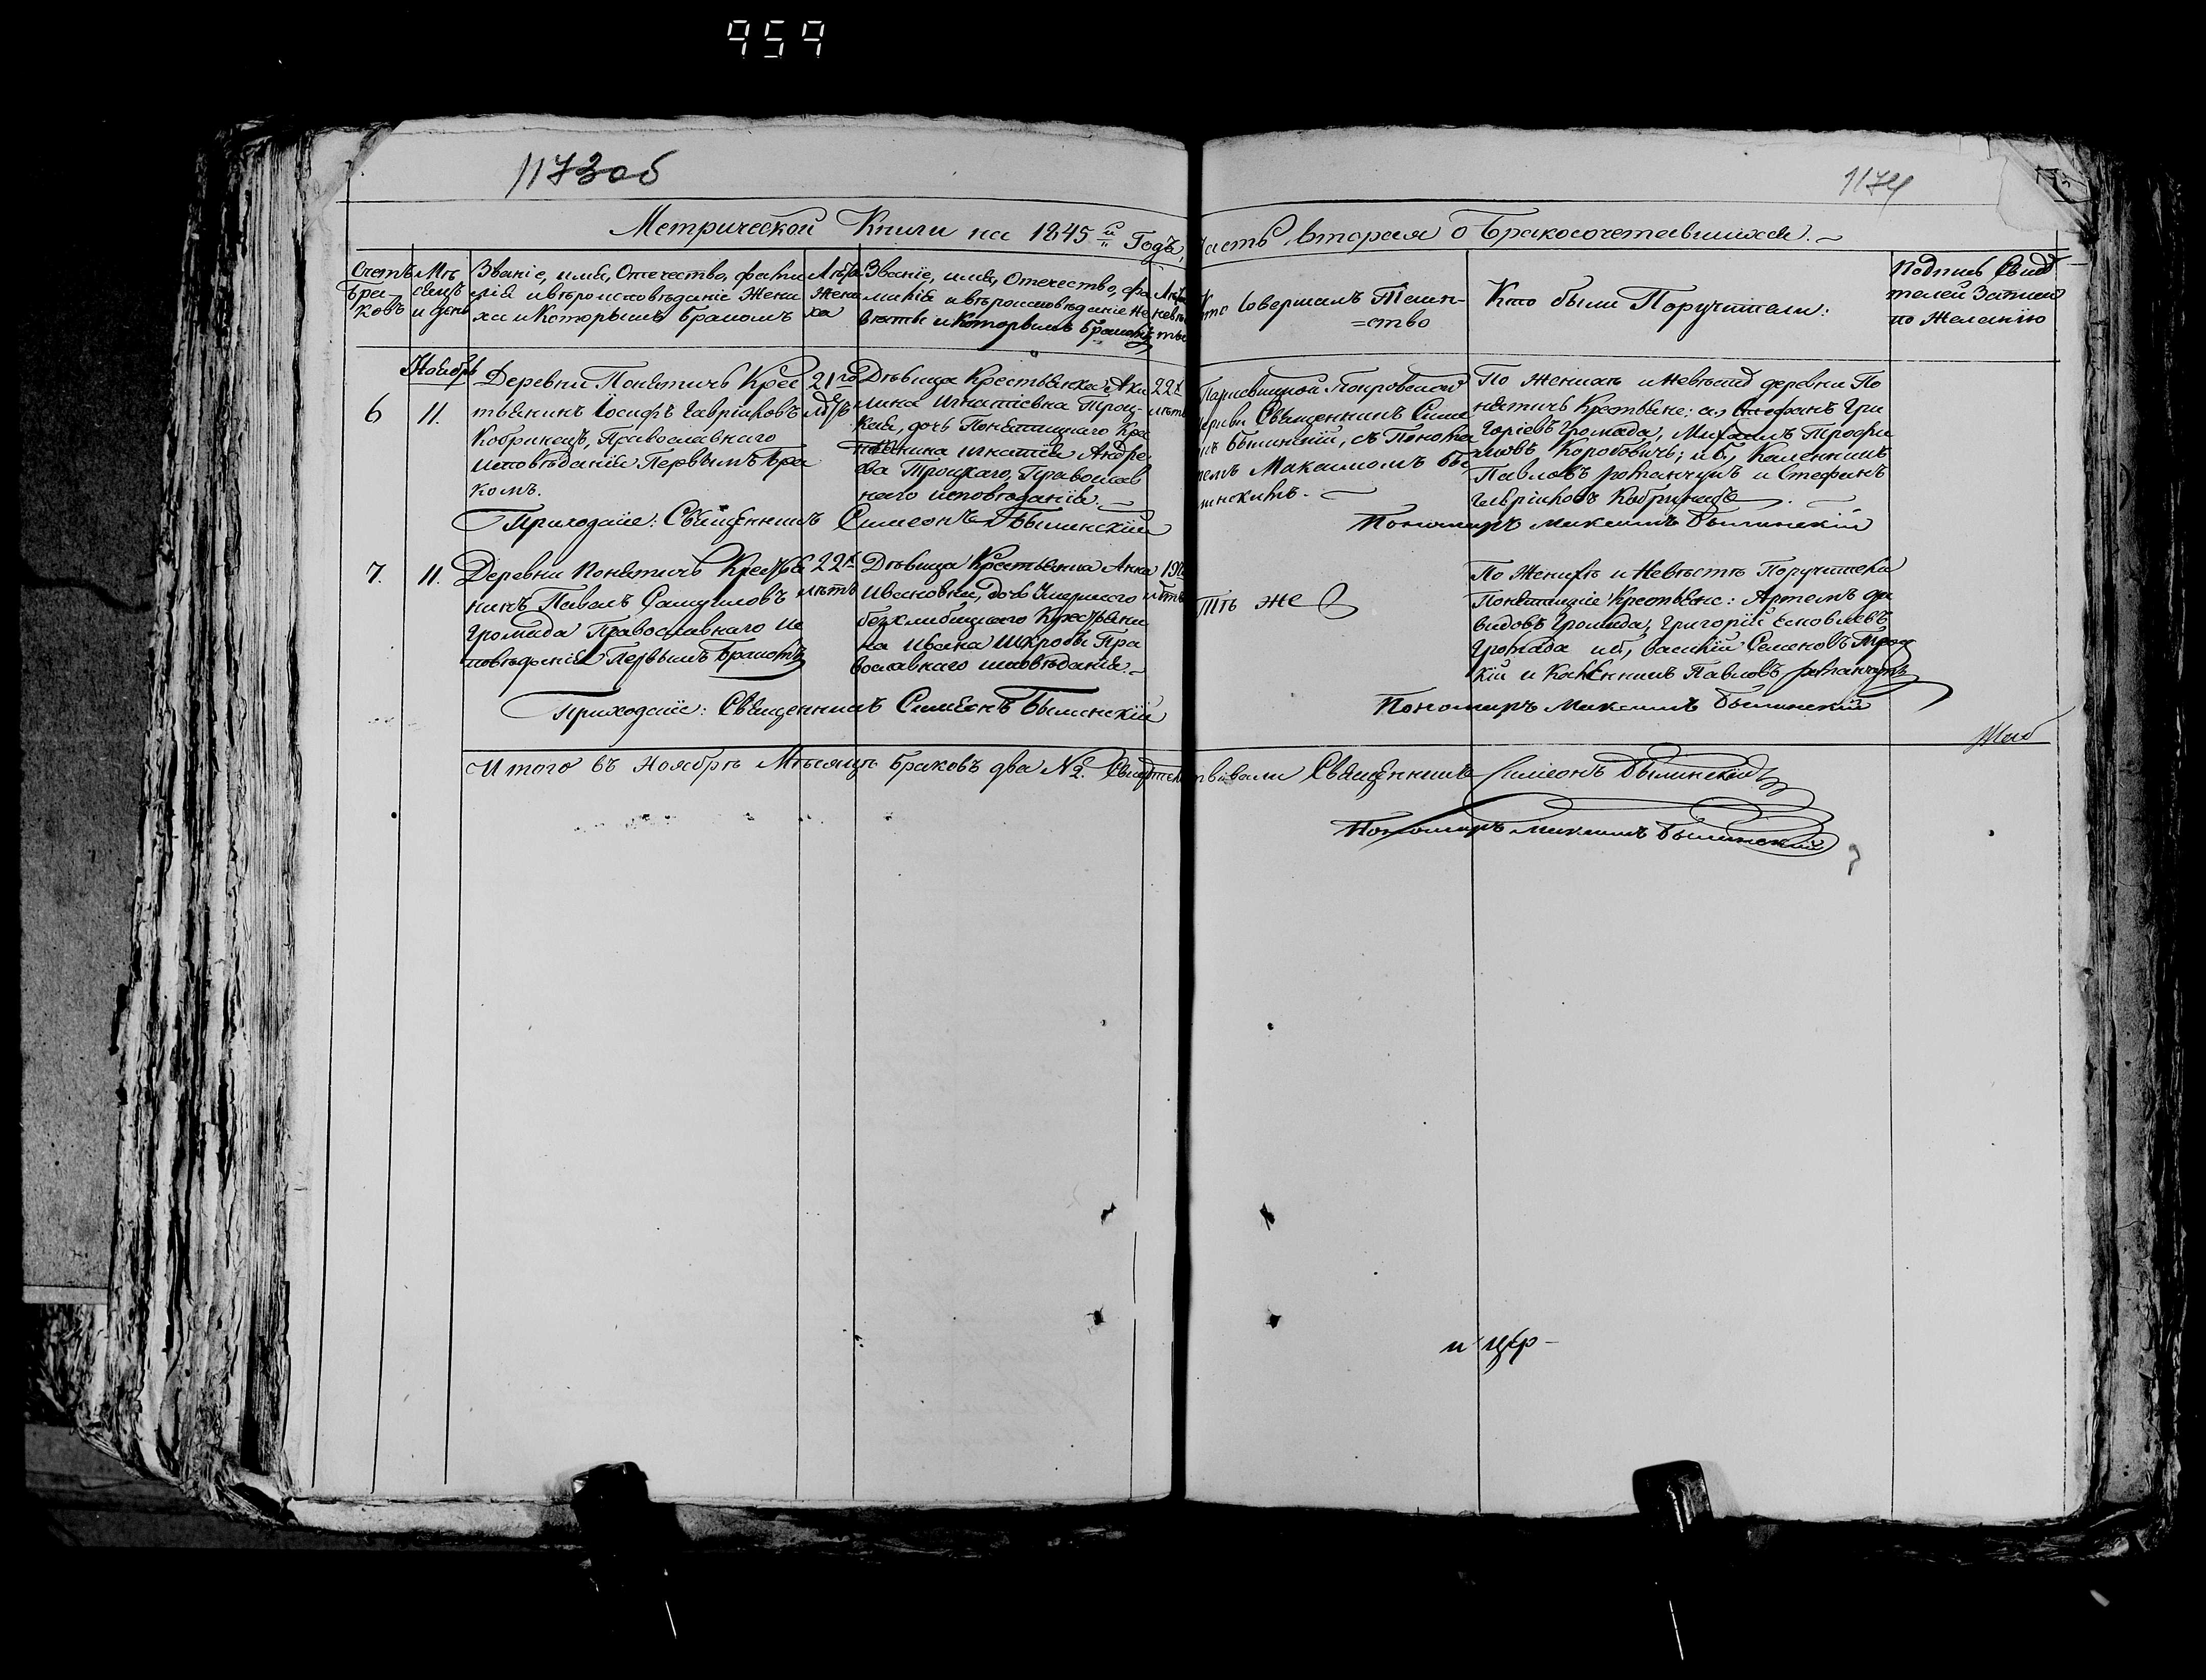 959
1173об
1174
Метрической Книги на 1845й Годъ, Часть вторая о Бракосочетавшихся.
Счетъ Бра-ковъ
Мѣсяцъ и день
Званіе, имя, Отечество, фами
лія и вѣроисповѣданіе Жени
ха и Которымъ Бракомъ
Лѣта Жениха
Званіе, имя, Отечество, фа
милія и вѣроисповѣданіе Не
вѣсты и Которымъ Бракомъ
Лѣта невѣсты
Кто Совершалъ Таин-
=ство
Кто были Поручители:
Подпись Свидѣ
телей Записи
по Желанію
Ноябрь
6
11.
Деревни Понятичъ Крес
тьянинъ Іосифъ Гавріиловъ
Кобринецъ, Православнаго
исповѣданія Первымъ Бра
комъ.
21го
Дѣвица Крестьянка Аки
лина Игнатіевна Троц-
кая, дочь Понятицкаго Кре
стьянина Игнатія Андре
ева Троцкаго, Православ
наго исповѣданія.
22х
лѣтъ
Покровской
Церкви Священникъ Симе
онъ Былинскій, съ Понома
ремъ Максимомъ Бы
линскимъ.
По Женихѣ и Невѣстѣ деревни По
нятичъ Крестьяне: а, Стефанъ Гри
горіевъ Громада, Михаилъ Трофи
мовъ Коробовичъ; и б,
Павловъ Романчукъ и Стефанъ
Гавріиловъ Кобринецъ.
Приходскіе: Священникъ Симеонъ Былинскій
Пономарь Максимъ Былинскій
7.
11.
Деревни Понятичъ Крестья
нинъ Павелъ Самуиловъ
Громада Православнаго ис
повѣданія Первымъ Бракомъ
22х
лѣтъ
Дѣвица Крестьянка Анна
Ивановна, дочь Умершаго
Крестьяни
на Ивана Шкробы Пра
вославнаго исповѣданія.
19
лѣтъ
Тѣ же
По Женихѣ и Невѣстѣ Поручители
Понятицкіе Крестьяне: Артемъ Да
видовъ Громада, Григорій Яковлевъ
Громада и б, Василій Семеновъ Троц
кій и Павловъ Романчукъ
Приходскіе: Священникъ Симеонъ Былинскій
Пономарь Максимъ Былинскій
Итого въ Ноябрѣ Мѣсяцѣ Браковъ два №2. Свидѣтельствовали Священникъ Симеонъ Былинскій
Пономарь Максимъ Былинскій